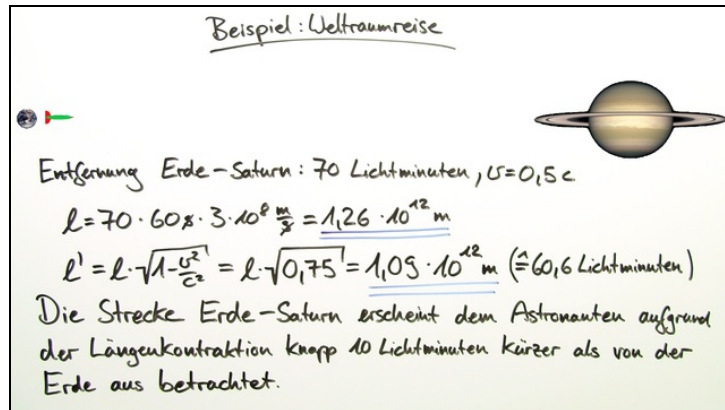 Beispiel: Weltraumreise
Entfernung Erde-Saturn: 70 Lichtminuten, v=0,5c
l = 70 · 60s · 3 · 10⁸ m/s = 1,26 · 10¹² m
l' = l · √(1-v²/c²) = l · √0,75 = 1,09 · 10¹² m (≙ 60,6 Lichtminuten)
Die Strecke Erde-Saturn erscheint dem Astronauten aufgrund
der Längenkontraktion knapp 10 Lichtminuten kürzer als von der
Erde aus betrachtet.